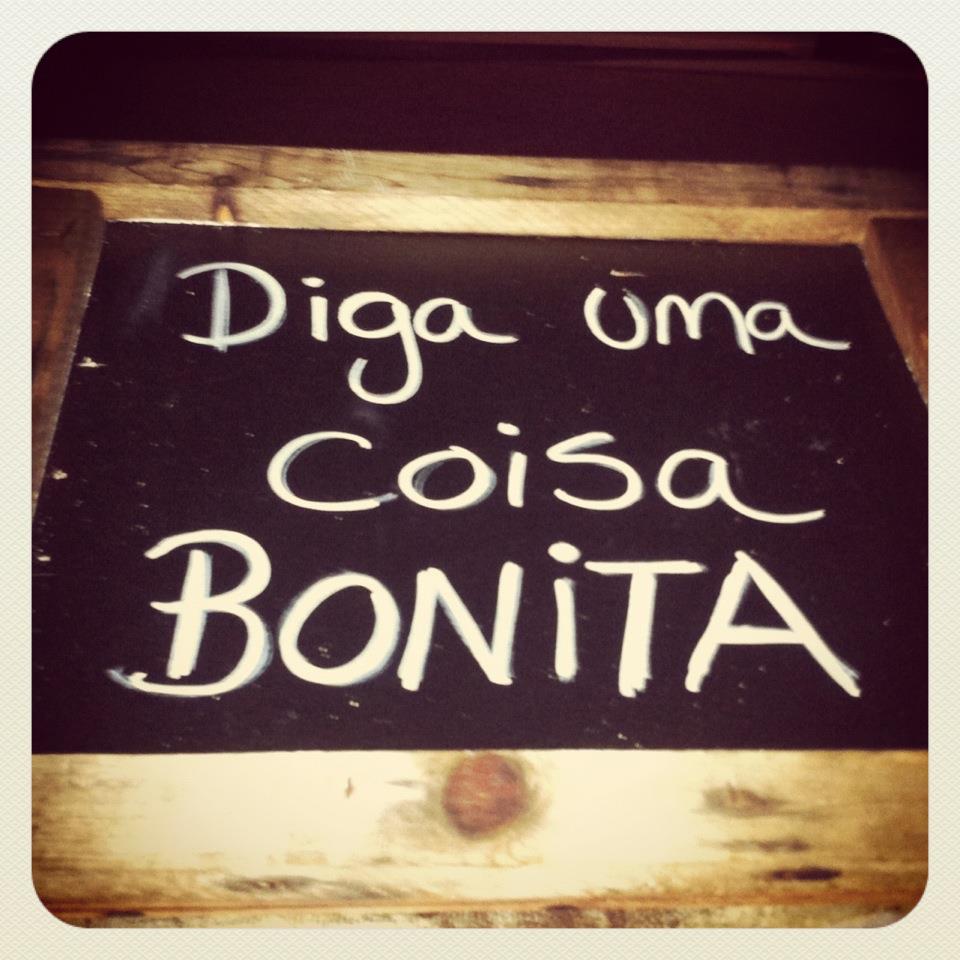 Diga uma
Coisa
BONiTA